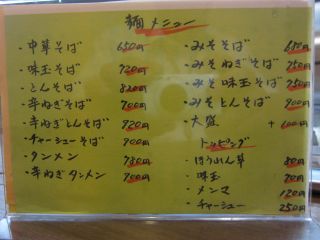 麺メニュー
・中華そば 650円
・味玉そば 720円
・とんそば 820円
・辛ねぎそば 700円
・辛ねぎとんそば 920円
・チャーシューそば 900円
・タンメン 780円
・辛ねぎタンメン 900円
・みそそば 680円
・みそねぎそば 750円
・みそ味玉そば 750円
・みそとんそば 900円
・大盛
トッピング
・ほうれん草 80円
・味玉 70円
・メンマ 120円
・チャーシュー 250円